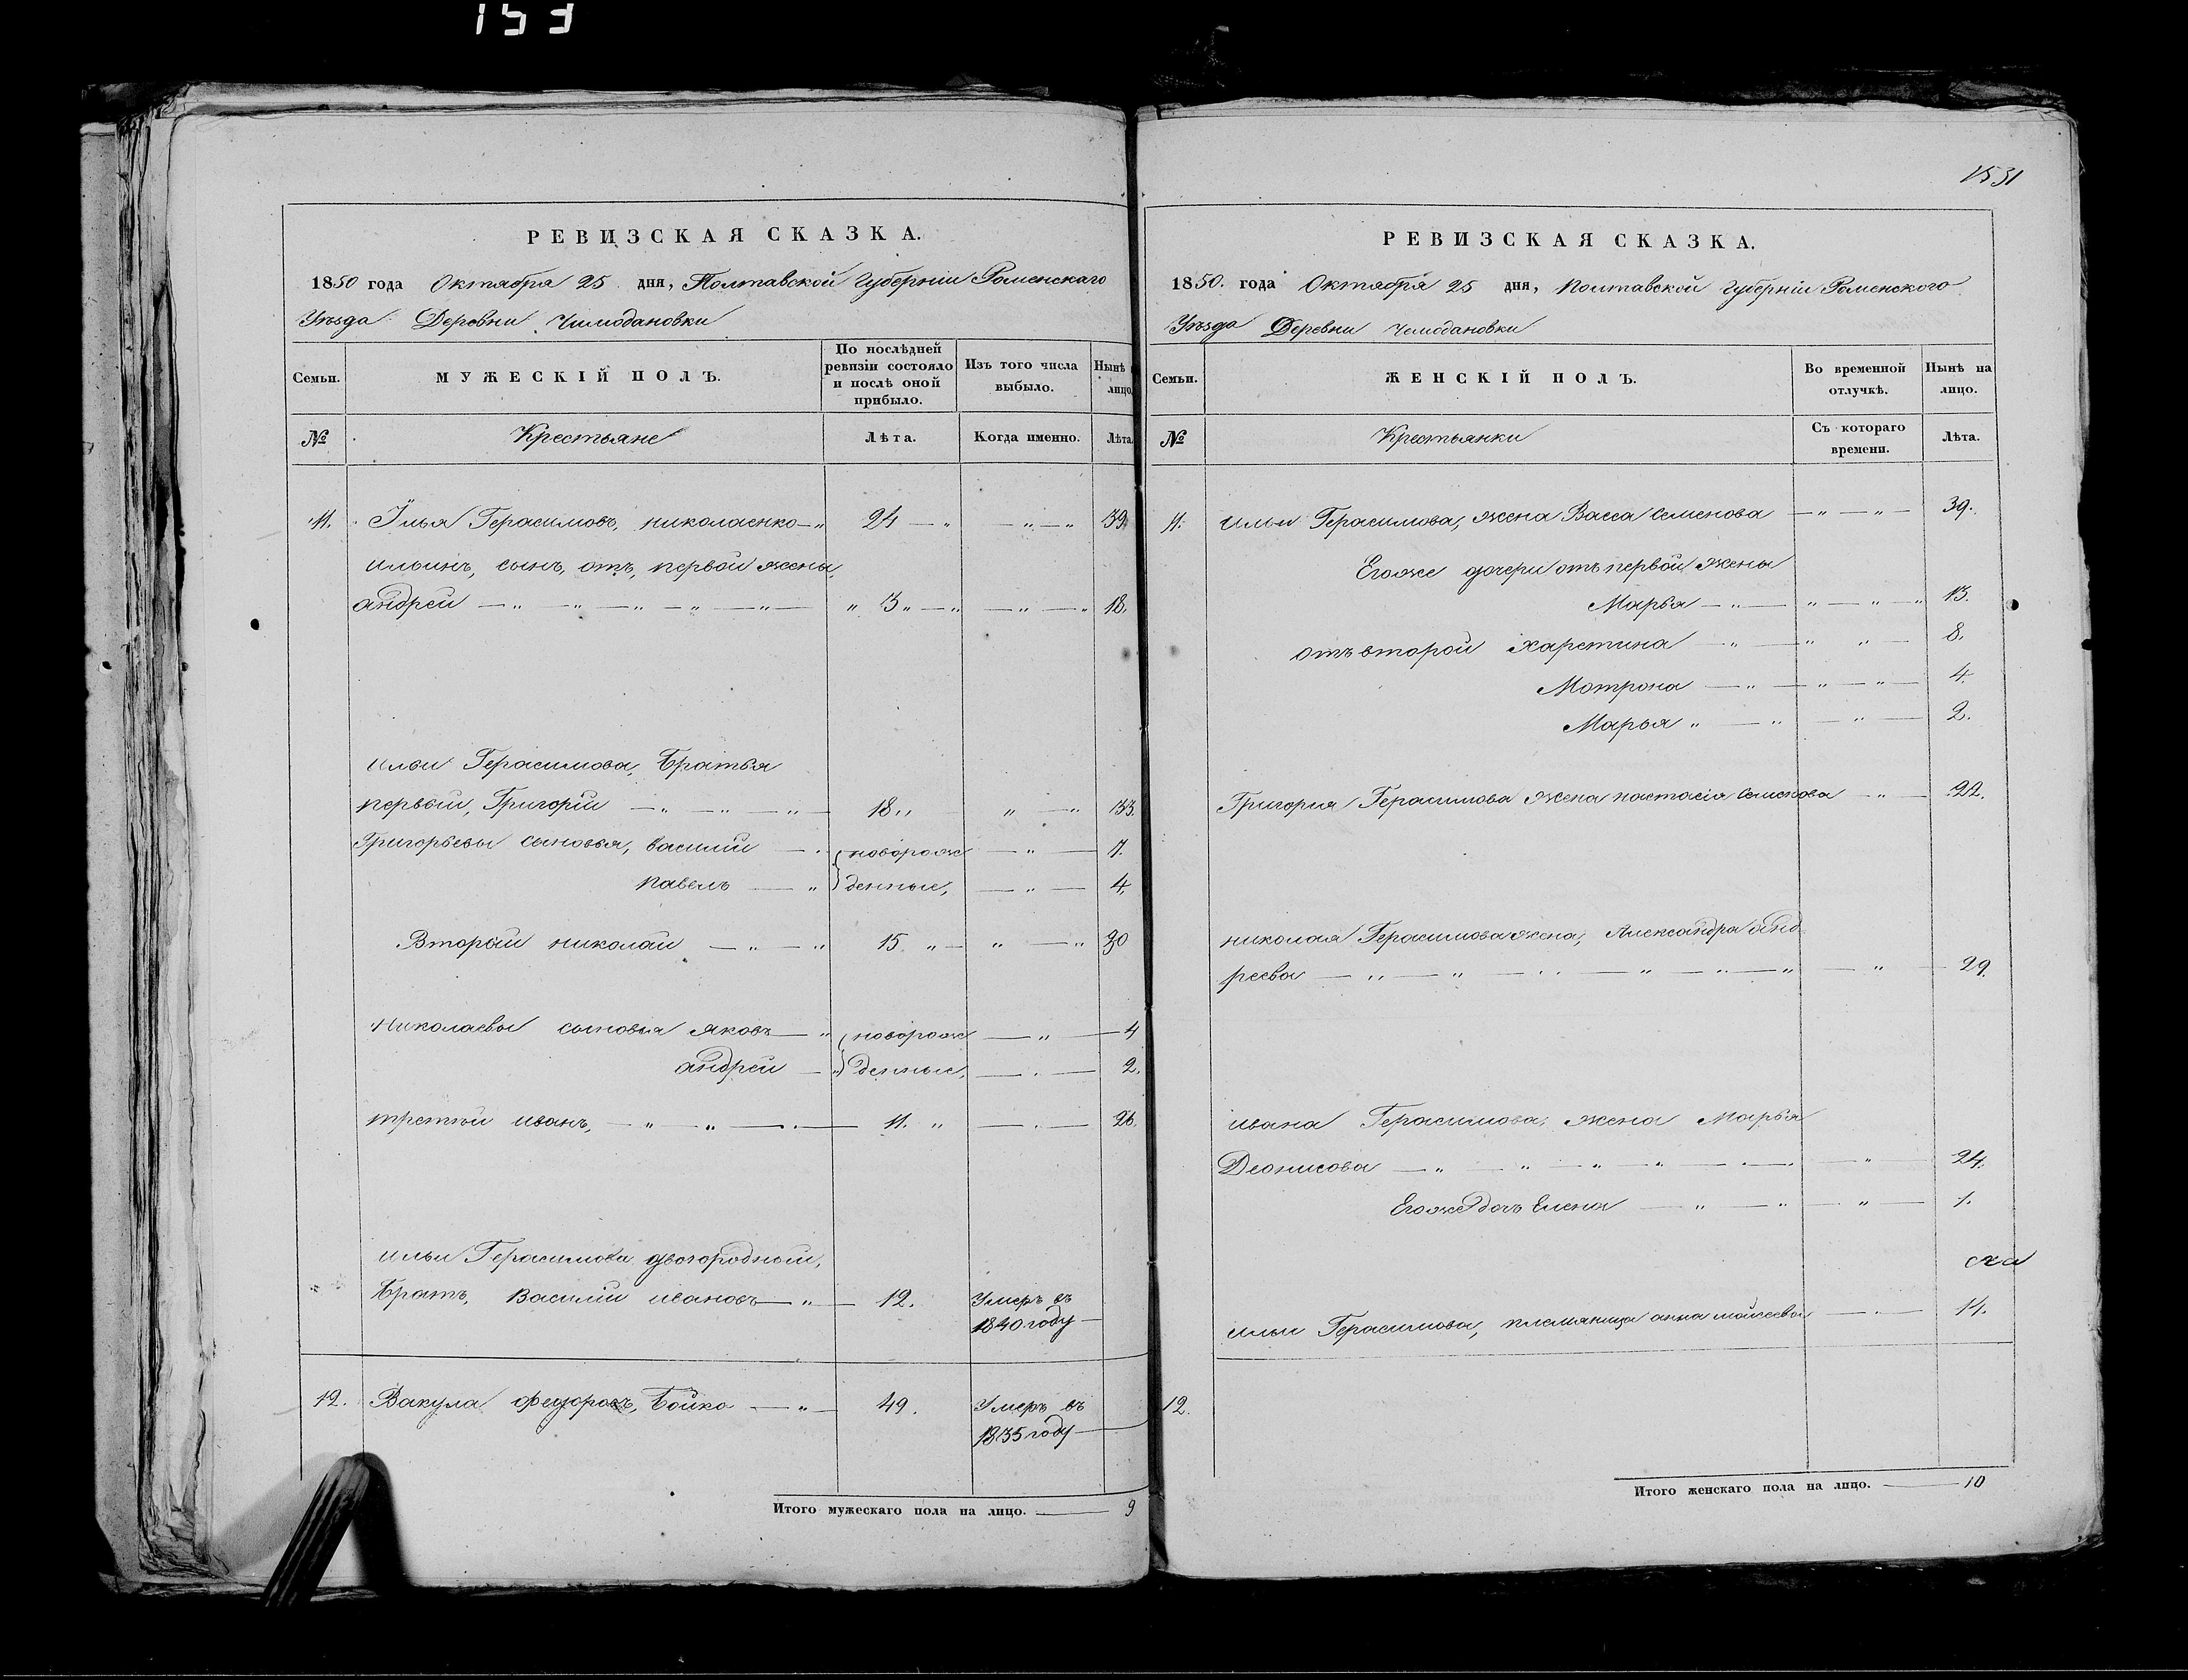 153
РЕВИЗСКАЯ СКАЗКА.
1850 года Октября 25 дня, Полтавской Губерніи Роменскаго
Уѣзда Деревни Чимодановки
Семьи.
МУЖЕСКІЙ ПОЛЪ.
По послѣдней ревизіи состояло и послѣ оной прибыло.
Изъ того числа выбыло.
Нынѣ лицо.
№ Крестьяне Лѣта. Когда именно. Лѣта.
11. Илья Герасимовъ, николаенко 24 39.
ильинъ, сынъ, отъ, первой жены,
андрей 3 18.
ильи Герасимова, Братья
первый, Григорій 18 33.
Григорьевы сыновья, василій новорож 7.
павелъ денные, 4.
Второй николай 15 30
Николаевы сыновья яковъ новорож 4
андрей денные, 2.
третій иванъ, 11. 26.
ильи Герасимова двоюродный,
Братъ, Василій ивановъ 12. Умеръ въ
1840 году
12. Вакула федоровъ, Бойко 49. Умеръ въ
1835 году
Итого мужескаго пола на лицо. 9
1531
РЕВИЗСКАЯ СКАЗКА.
1850. года Октября 25 дня, Полтавской Губерніи Роменского
Уѣзда Деревни Чемодановки
Семьи.
ЖЕНСКІЙ ПОЛЪ.
Во временной отлучкѣ.
Нынѣ на лицо.
№ Крестьянки Съ котораго времени. Лѣта.
11. Ильи Герасимова, жена Васса Семенова 39.
Егоже дочери отъ первой жены
Марья 13.
отъ второй харетина 8.
Мотрона 4.
Марья 2.
Григорія Герасимова жена настасія Семенова 22.
николая Герасимова жена, Александра Анд
реева 29.
ивана Герасимова, жена Марья
Деонисова 24.
Егоже дочь Елена 1.
ильи Герасимова, племянница анна мойсеева 14.
12.
Итого женскаго пола на лицо. 10